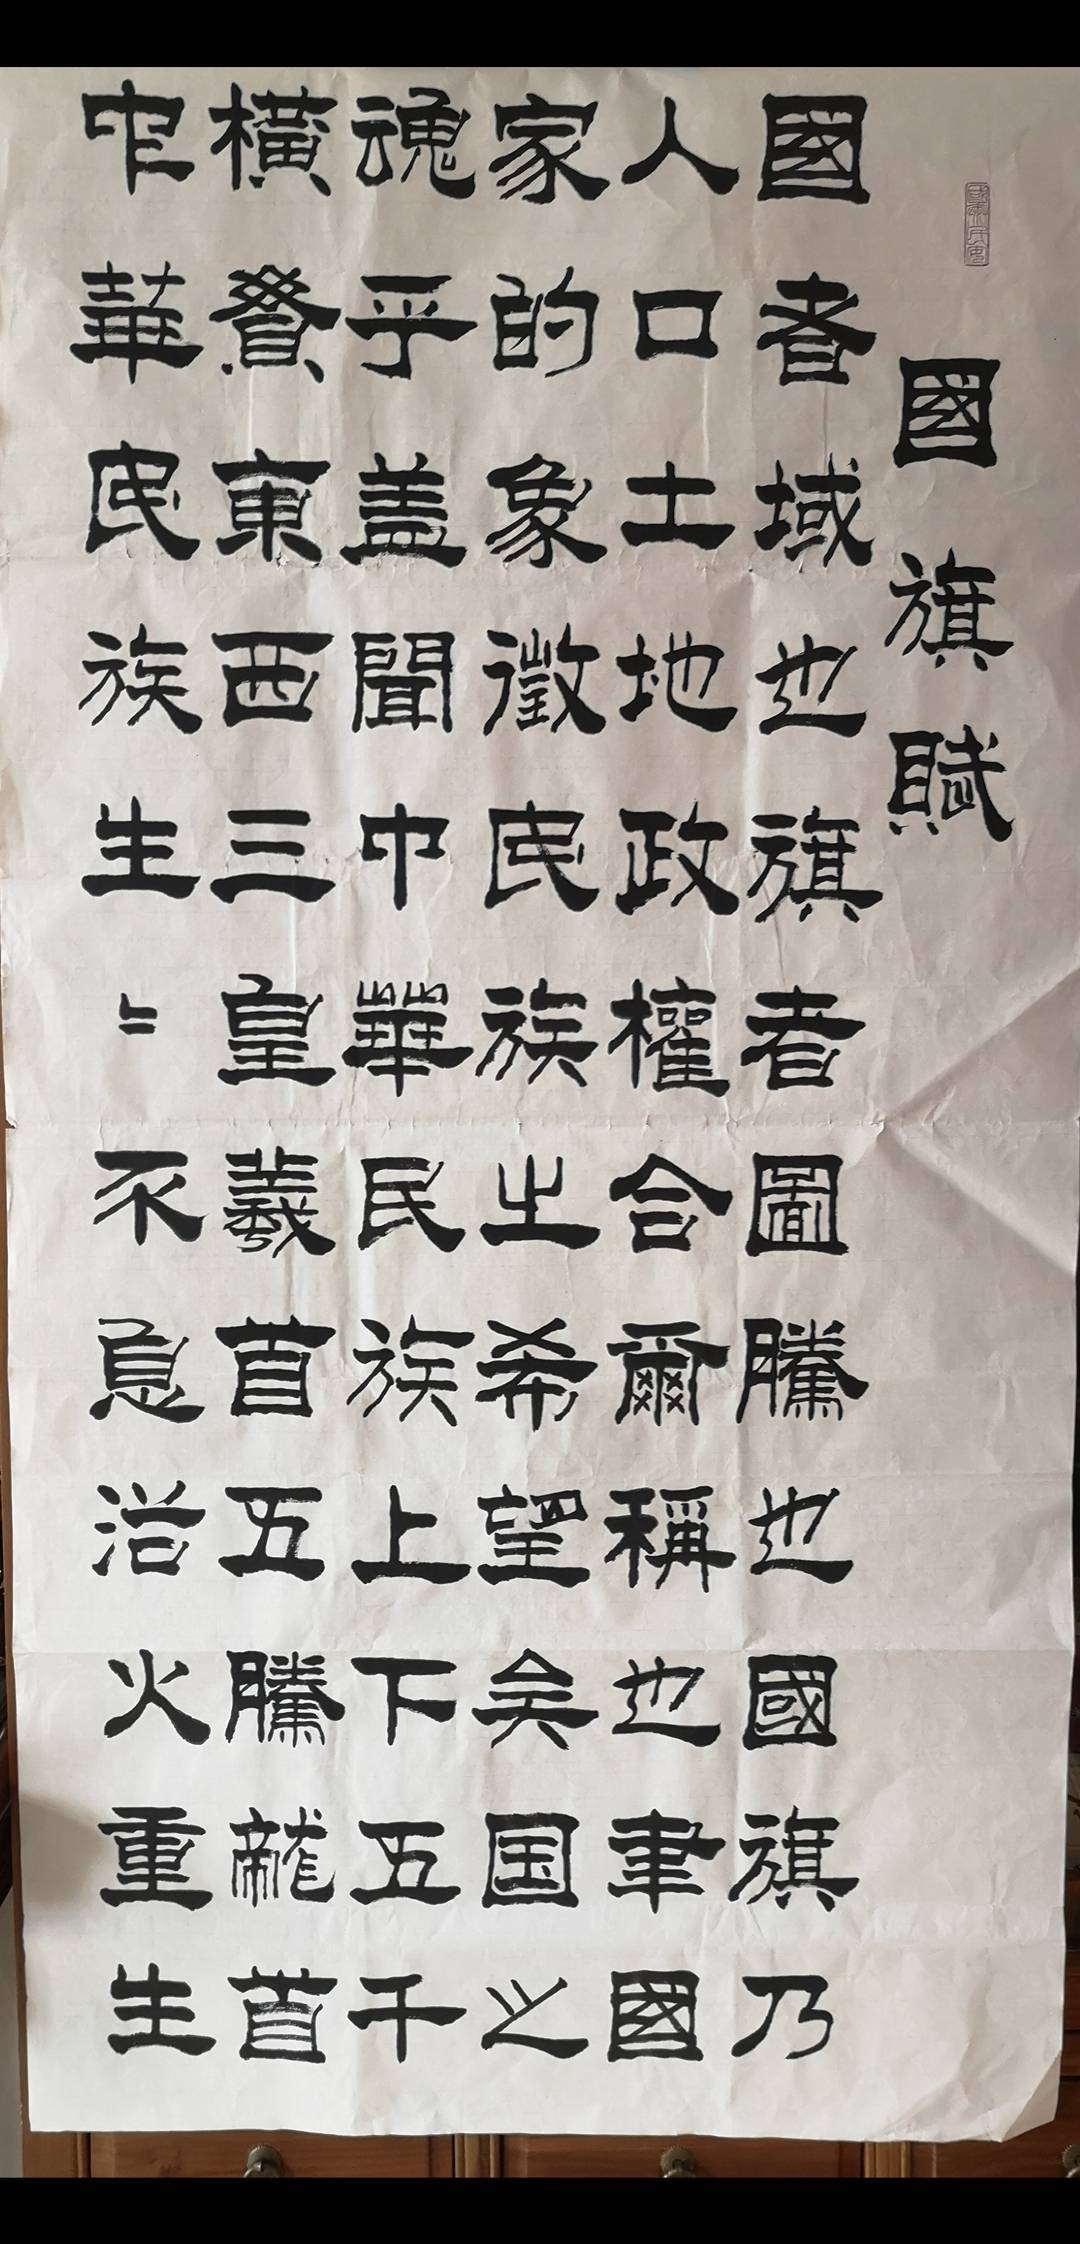 國旗賦
國者域也旗者圖騰也國旗乃
人口土地政權合爾稱也聿國
家的象徵民族㞢希望矣国之
魂乎盖聞中華民族上下五千
橫貫東西三皇羲首五騰龍首
中華民族生〻不息浴火重生